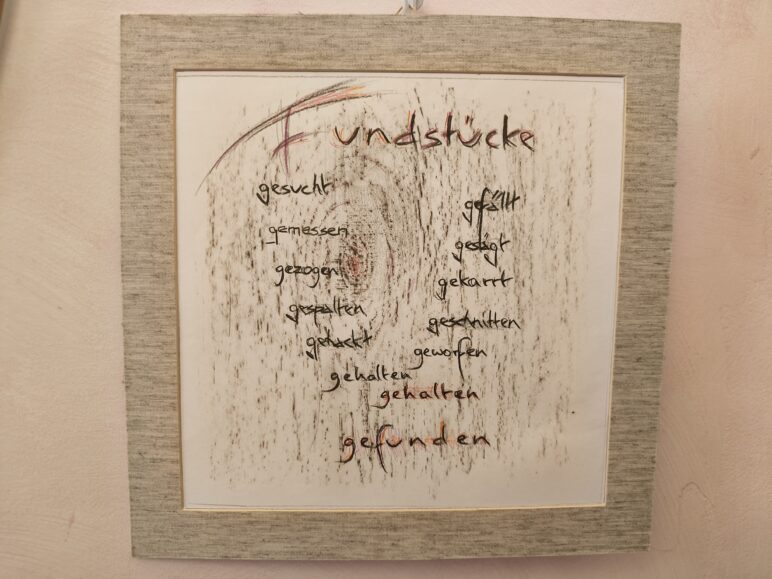 Fundstücke
gesucht
gemessen
gezogen
gespalten
gehackt
gehalten
gefällt
gesägt
gekarrt
geschnitten
geworfen
gehalten
gefunden